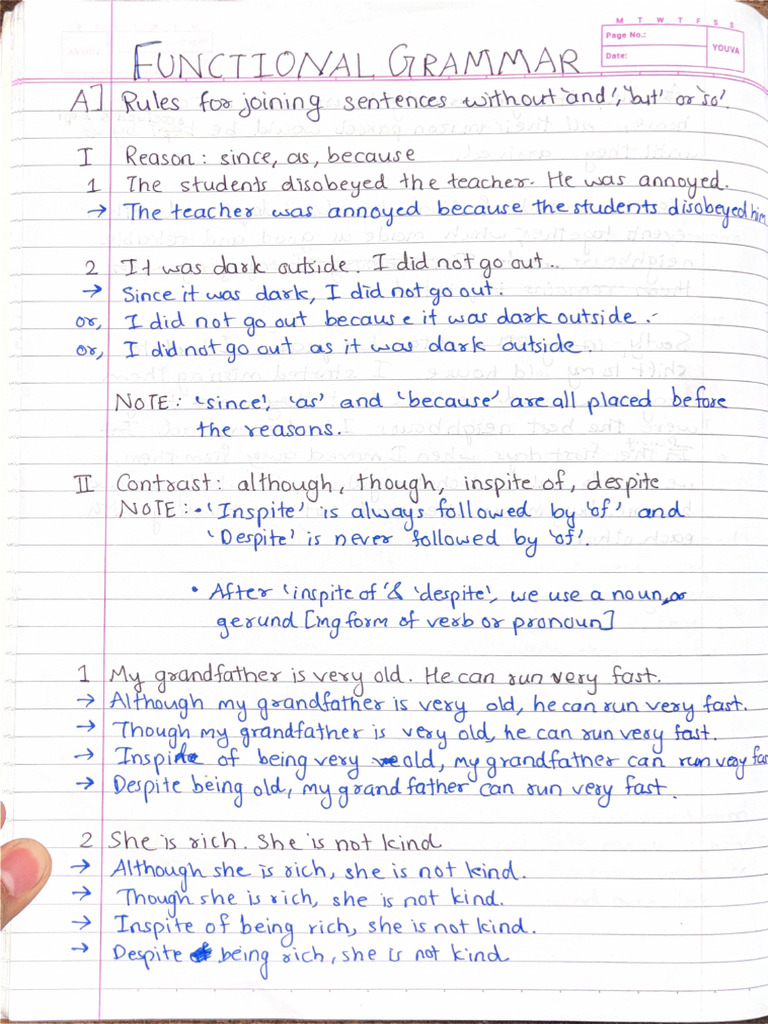 M T W T F S S
Page No.:
Date:
YOUVA
FUNCTIONAL GRAMMAR
A] Rules for joining sentences without 'and', 'but' or 'so'.
I Reason: since, as, because
1 The students disobeyed the teacher. He was annoyed.
→ The teacher was annoyed because the students disobeyed him
2 It was dark outside. I did not go out..
→ Since it was dark, I did not go out.
or, I did not go out because it was dark outside.
or, I did not go out as it was dark outside.
NOTE: 'since', 'as' and 'because' are all placed before
the reasons.
II Contrast: although, though, inspite of, despite
NOTE: • 'Inspite' is always followed by 'of' and
'Despite' is never followed by 'of'.
• After 'inspite of' & 'despite', we use a noun, or
gerund [ing form of verb or pronoun]
1 My grandfather is very old. He can run very fast.
→ Although my grandfather is very old, he can run very fast.
→ Though my grandfather is very old, he can run very fast.
→ Inspite of being very old, my grandfather can run very fas
→ Despite being old, my grandfather can run very fast.
2 She is rich. She is not kind
→ Although she is rich, she is not kind.
→ Though she is rich, she is not kind.
→ Inspite of being rich, she is not kind.
→ Despite being rich, she is not kind